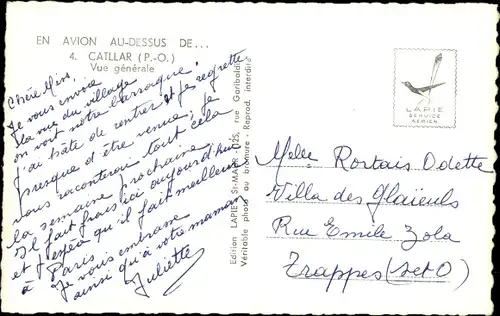 EN AVION AU-DESSUS DE...
4. CATLLAR (P.-O.)
Vue générale
Chère Miss,
Je vous envoie
la vue du village
on voit notre barraque.
j'ai hâte de rentrer et je regrette
presque d'être venue; je
vous raconterai tout cela
la semaine prochaine
Il fait frais ici aujourd'hui
et j'espère qu'il fait meilleur
à Paris
Je vous embrasse
ainsi qu'à votre maman
Juliette
Edition LAPIE, ST-MAUR - 025, rue Garibaldi
Véritable photo au bromure - Reprod. interdite
LAPIE
SERVICE
AERIEN
Melle Rortais Odette
Villa des Glaïeuls
Rue Emile Zola
Trappes (S et O)